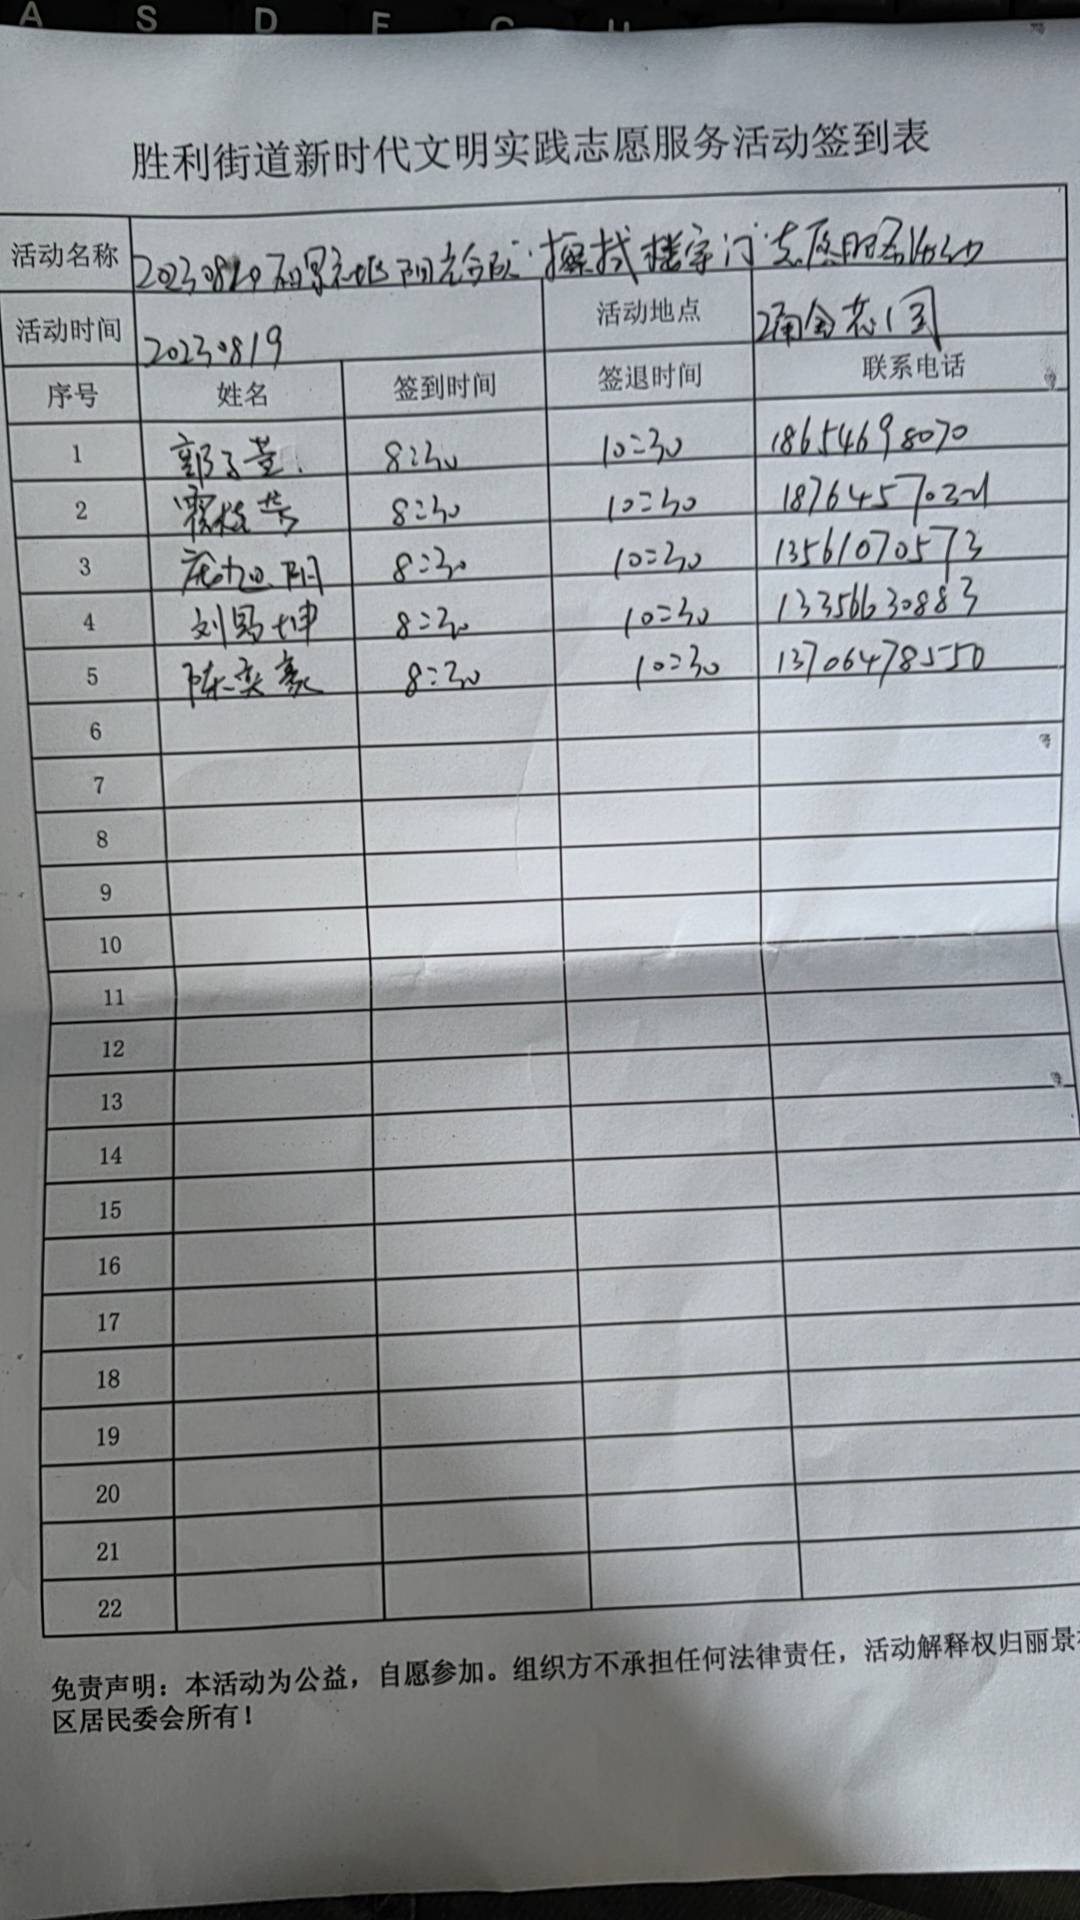 A S D F G H
胜利街道新时代文明实践志愿服务活动签到表
活动名称 擦拭楼宇门志愿服务活动
活动时间 20230819 活动地点 涌金花园
序号 姓名 签到时间 签退时间 联系电话
1 8:30 10:30 18654698070
2 8:30 10:30
3 8:30 10:30 13561070573
4 8:30 10:30 13356630883
5 陈奕豪 8:30 10:30 13706478550
6
7
8
9
10
11
12
13
14
15
16
17
18
19
20
21
22
免责声明：本活动为公益，自愿参加。组织方不承担任何法律责任，活动解释权归丽景社
区居民委会所有！